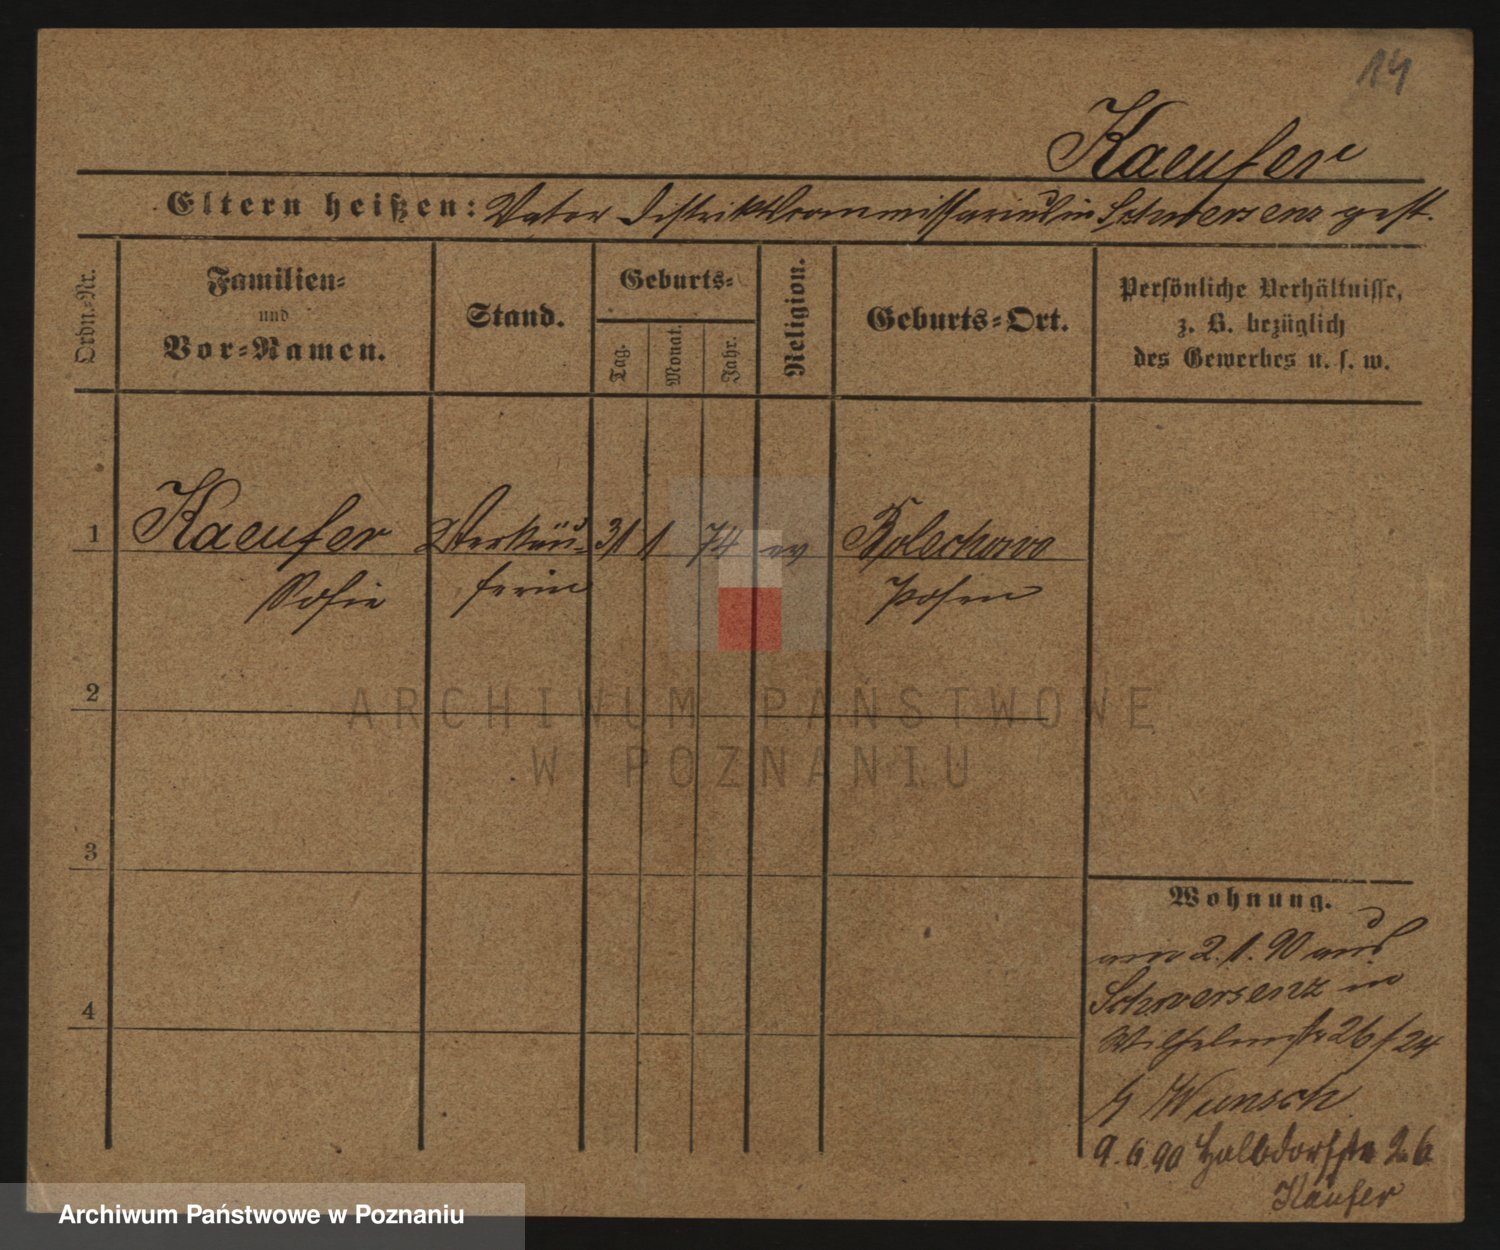 14
Kaeufer
Eltern heißen: Vater Distriktkommissarius in Schwersenz gest.
Ordn.-Nr.
Familien-
und
Vor-Namen.
Stand.
Geburts-
Tag.
Monat.
Jahr.
Religion.
Geburts-Ort.
Persönliche Verhältnisse,
z. B. bezüglich
des Gewerbes u. s. w.
1 Kaeufer Verkäu- 31 1 74 ev
Sofie ferin Posen
2
ARCHIWUM PAŃSTWOWE
W POZNANIU
3
4
Wohnung.
am 2.1.90 aus
Schwersenz in
Wilhelmstr 26 / 24
Wunsch
9.6.90 Halbdorfstr 26
Käufer
Archiwum Państwowe w Poznaniu